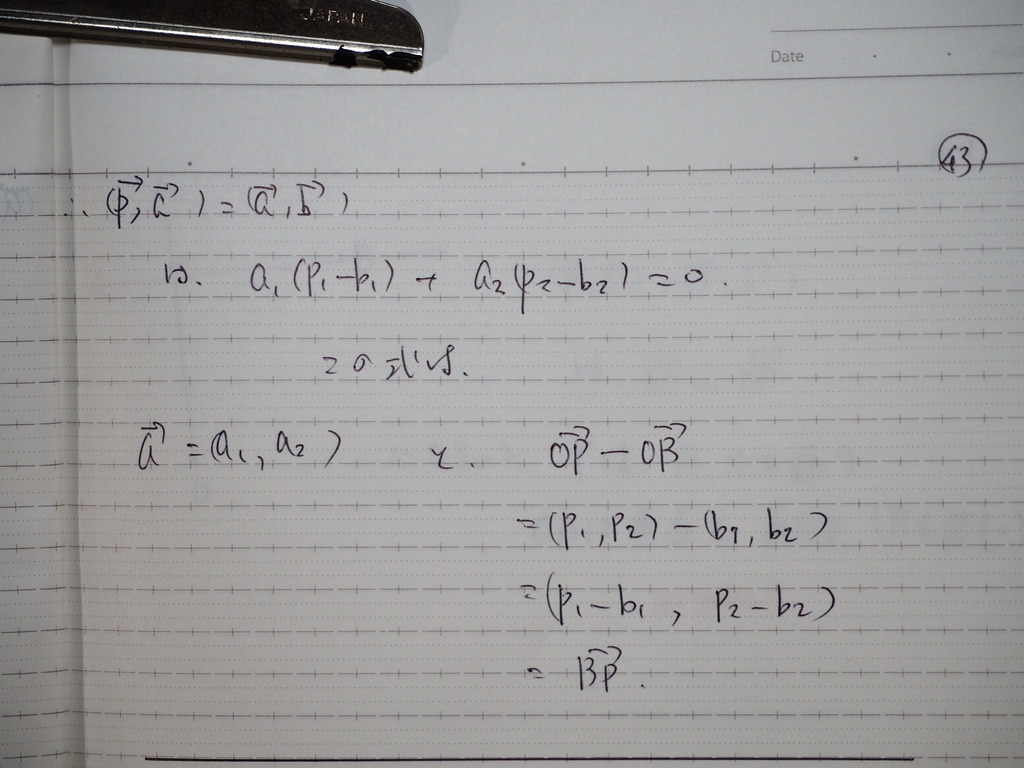 JAPAN
Date
43
∴ (p⃗, a⃗) = (a⃗, b⃗)
は. a₁(p₁-b₁) + a₂(p₂-b₂) = 0.
この式は.
a⃗ = (a₁, a₂) と. OP⃗ - OB⃗
= (p₁, p₂) - (b₁, b₂)
= (p₁-b₁, p₂-b₂)
= BP⃗.